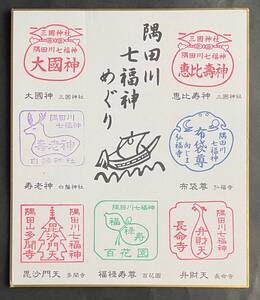 隅田川
七福神
めぐり
三囲神社
隅田川七福神
大國神
大國神 三囲神社
三囲神社
隅田川七福神
恵比寿神
恵比寿神 三囲神社
隅田川七福神
寿老神
白鬚神社
寿老神 白鬚神社
隅田川七福神
布袋尊
向じま
弘福寺
布袋尊 弘福寺
隅田川七福神
毘沙門天
隅田山多聞寺
毘沙門天 多聞寺
隅田川七福神
福禄寿
百花園
福禄寿尊 百花園
隅田川七福神
弁財天
長命寺
弁財天 長命寺